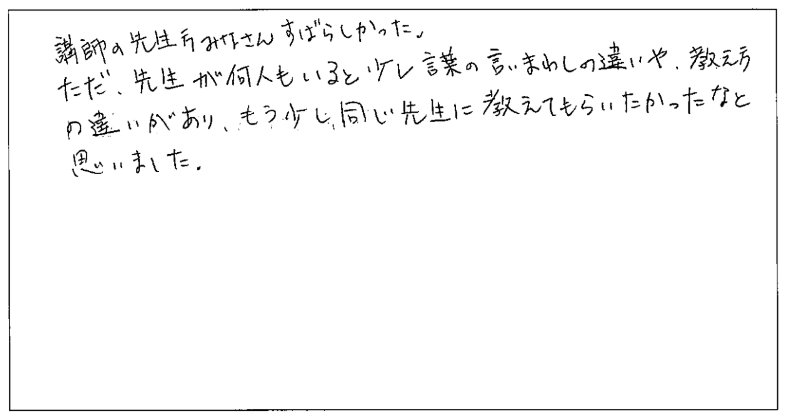 講師の先生方みなさんすばらしかった。
ただ、先生が何人もいると少し言葉の言いまわしの違いや、教え方
の違いがあり、もう少し、同じ先生に教えてもらいたかったなと
思いました。